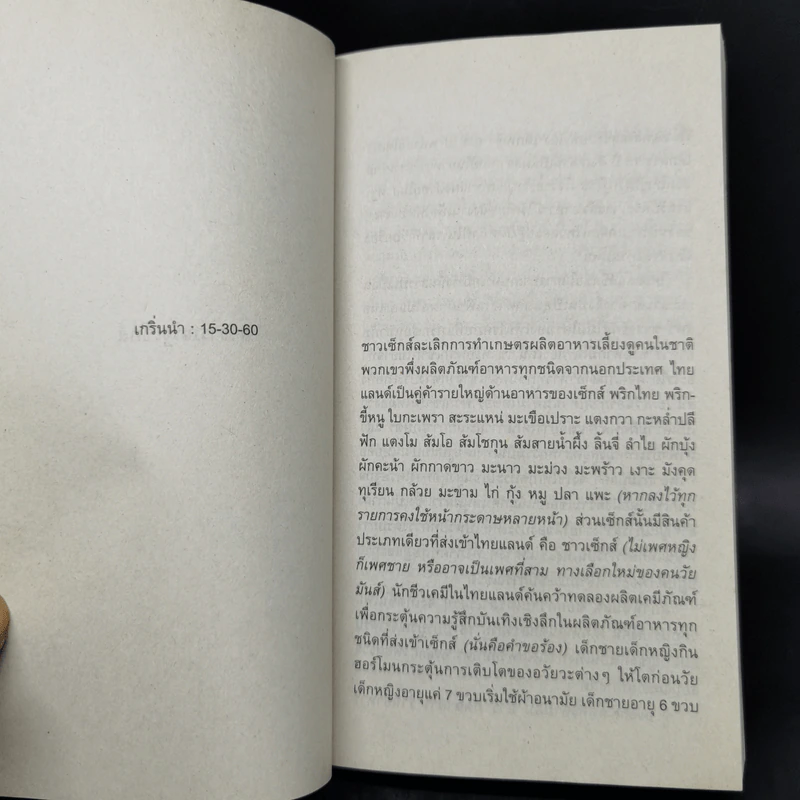 เกริ่นนำ : 15-30-60
ชาวเซ็กส์ละเลิกการทำเกษตรผลิตอาหารเลี้ยงดูคนในชาติ
พวกเขาพึ่งผลิตภัณฑ์อาหารทุกชนิดจากนอกประเทศ ไทย
แลนด์เป็นคู่ค้ารายใหญ่ด้านอาหารของเซ็กส์ พริกไทย พริก-
ขี้หนู ใบกะเพรา สะระแหน่ มะเขือเปราะ แตงกวา กะหล่ำปลี
ฟัก แตงโม ส้มโอ ส้มโชกุน ส้มสายน้ำผึ้ง ลิ้นจี่ ลำไย ผักบุ้ง
ผักคะน้า ผักกาดขาว มะนาว มะม่วง มะพร้าว เงาะ มังคุด
ทุเรียน กล้วย มะขาม ไก่ กุ้ง หมู ปลา แพะ (หากลงไว้ทุก
รายการคงใช้หน้ากระดาษหลายหน้า) ส่วนเซ็กส์นั้นมีสินค้า
ประเภทเดียวที่ส่งเข้าไทยแลนด์ คือ ชาวเซ็กส์ (ไม่เพศหญิง
ก็เพศชาย หรืออาจเป็นเพศที่สาม ทางเลือกใหม่ของคนวัย
มันส์) นักชีวเคมีในไทยแลนด์ค้นคว้าทดลองผลิตเคมีภัณฑ์
เพื่อกระตุ้นความรู้สึกบันเทิงเชิงลึกในผลิตภัณฑ์อาหารทุก
ชนิดที่ส่งเข้าเซ็กส์ (นั่นคือคำขอร้อง) เด็กชายเด็กหญิงกิน
ฮอร์โมนกระตุ้นการเติบโตของอวัยวะต่างๆ ให้โตก่อนวัย
เด็กหญิงอายุแค่ 7 ขวบเริ่มใช้ผ้าอนามัย เด็กชายอายุ 6 ขวบ